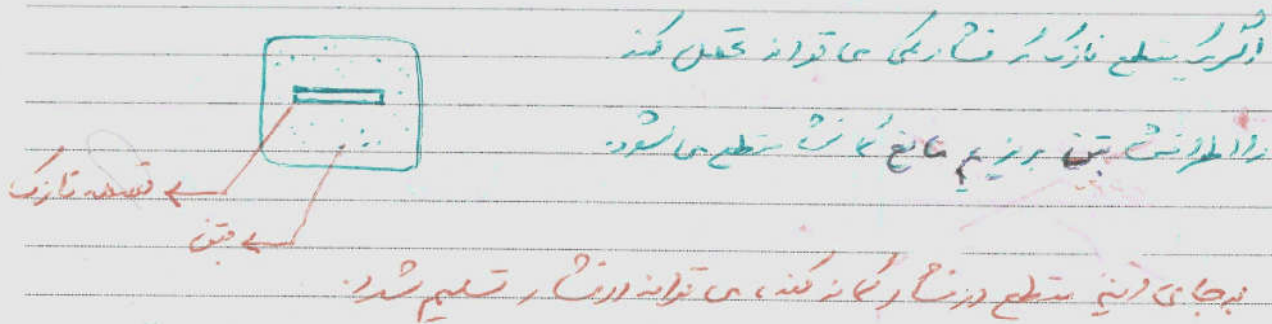 اگر یک مقطع نازک که فشار کمی می تواند تحمل کند
را اطرافش بتن بریزیم مانع کمانش مقطع می شود.
تسمه نازک
بتن
به جای اینکه مقطع در فشار کمانه کند، می تواند در فشار تسلیم شود.